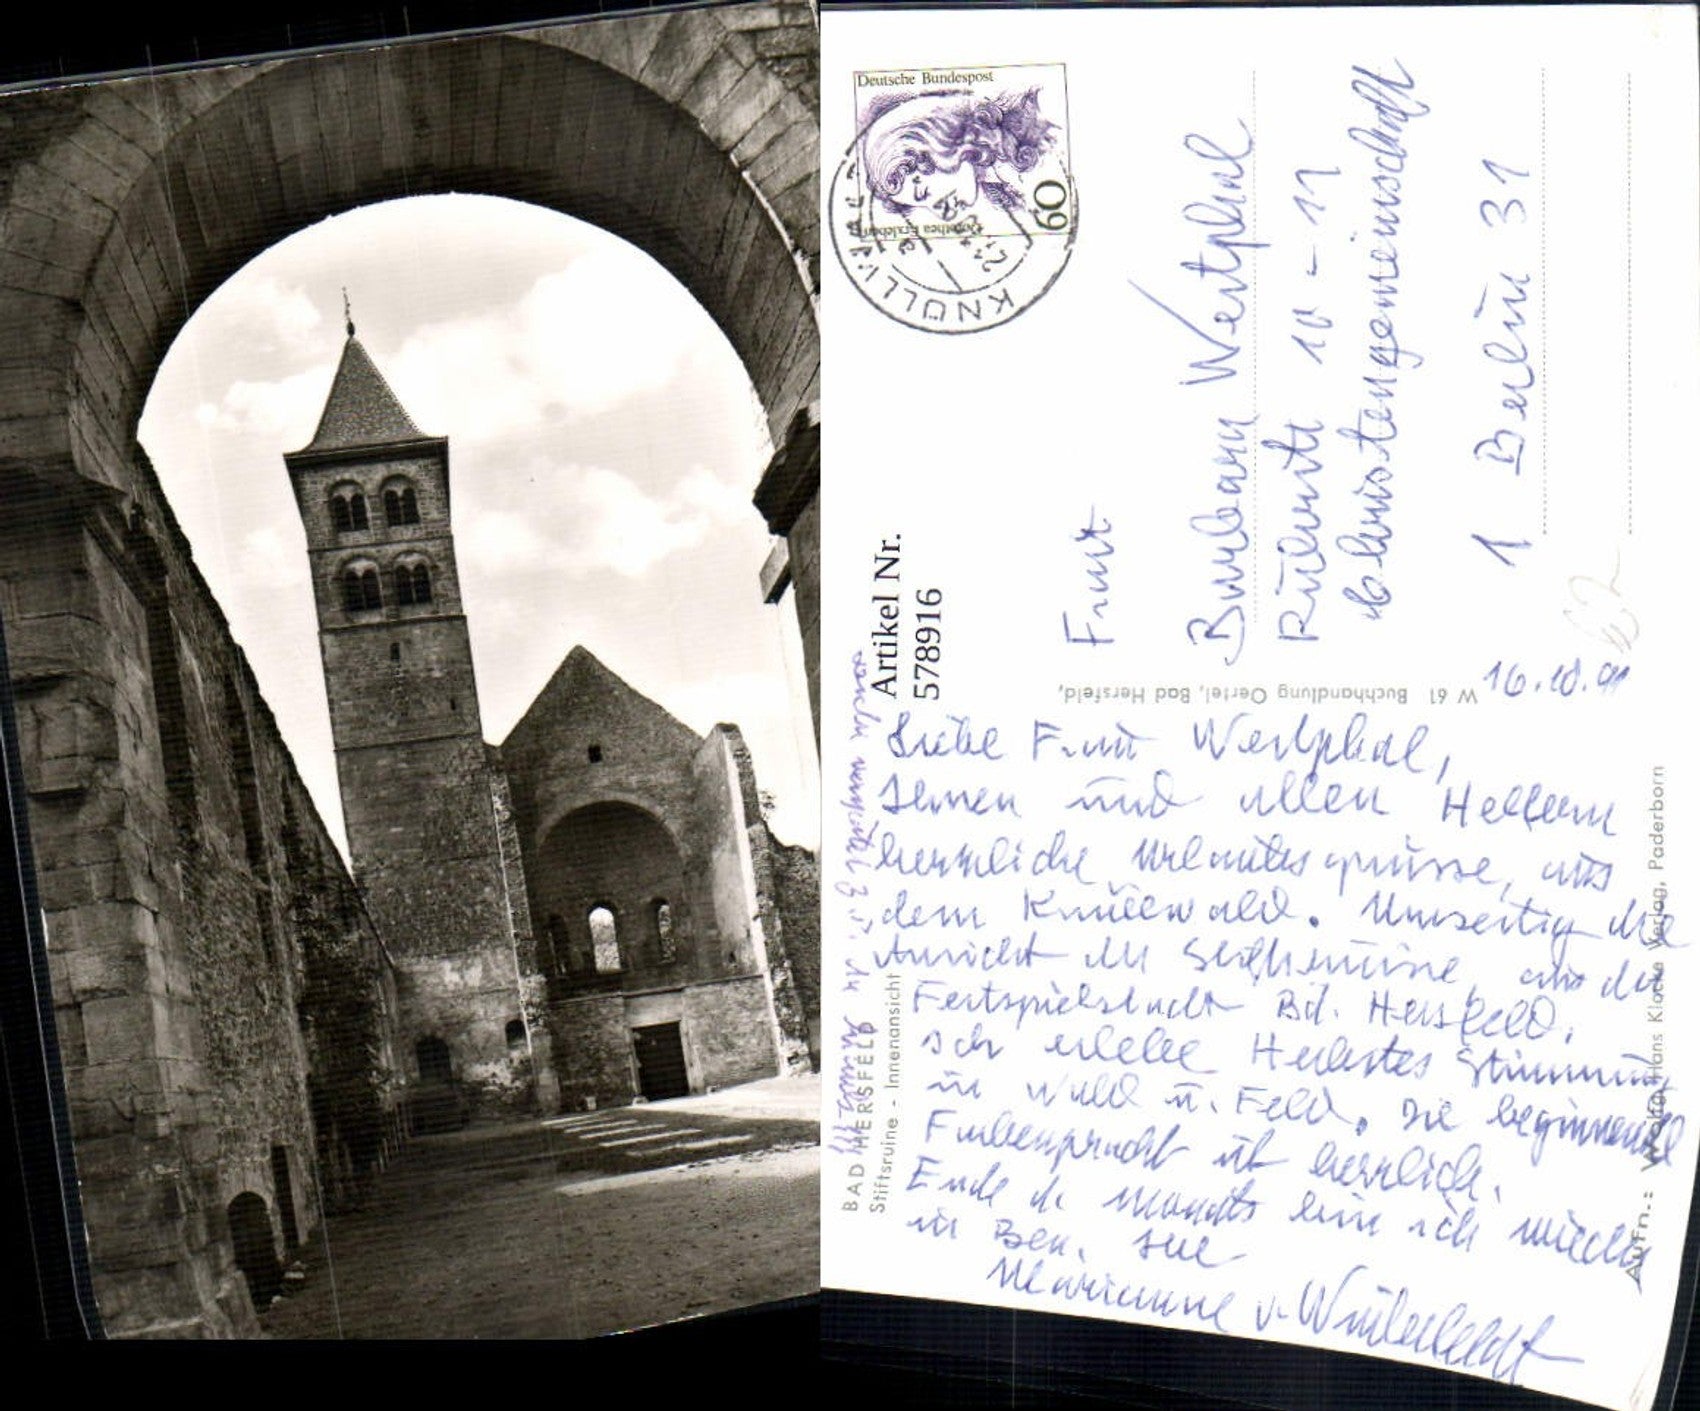 Deutsche Bundespost
60
Dorothea Erxleben
KNÜLLW
Artikel Nr.
578916
Frau
Barbara Westphal
Ruhrstr. 10 - 11
Christengemeinschaft
1 Berlin 31
W 61 Buchhandlung Oertel, Bad Hersfeld,
16.10.91
Liebe Frau Westphal,
Ihnen und allen Helfern
herzliche Urlaubsgrüsse, aus
dem Knüllwald. Umseitig die
Ansicht der Stiftsruine, aus der
Festspielstadt Bd. Hersfeld.
Ich erlebe Herbstes Stimmung
in Wald u. Feld. Die beginnende
Farbenpracht ist herrlich.
Ende d. Monats bin ich wieder
in Berl. Ihre
Marianne v.
BAD HERSFELD
Stiftsruine - Innenansicht
Aufn.: Hans Klocke Verlag, Paderborn